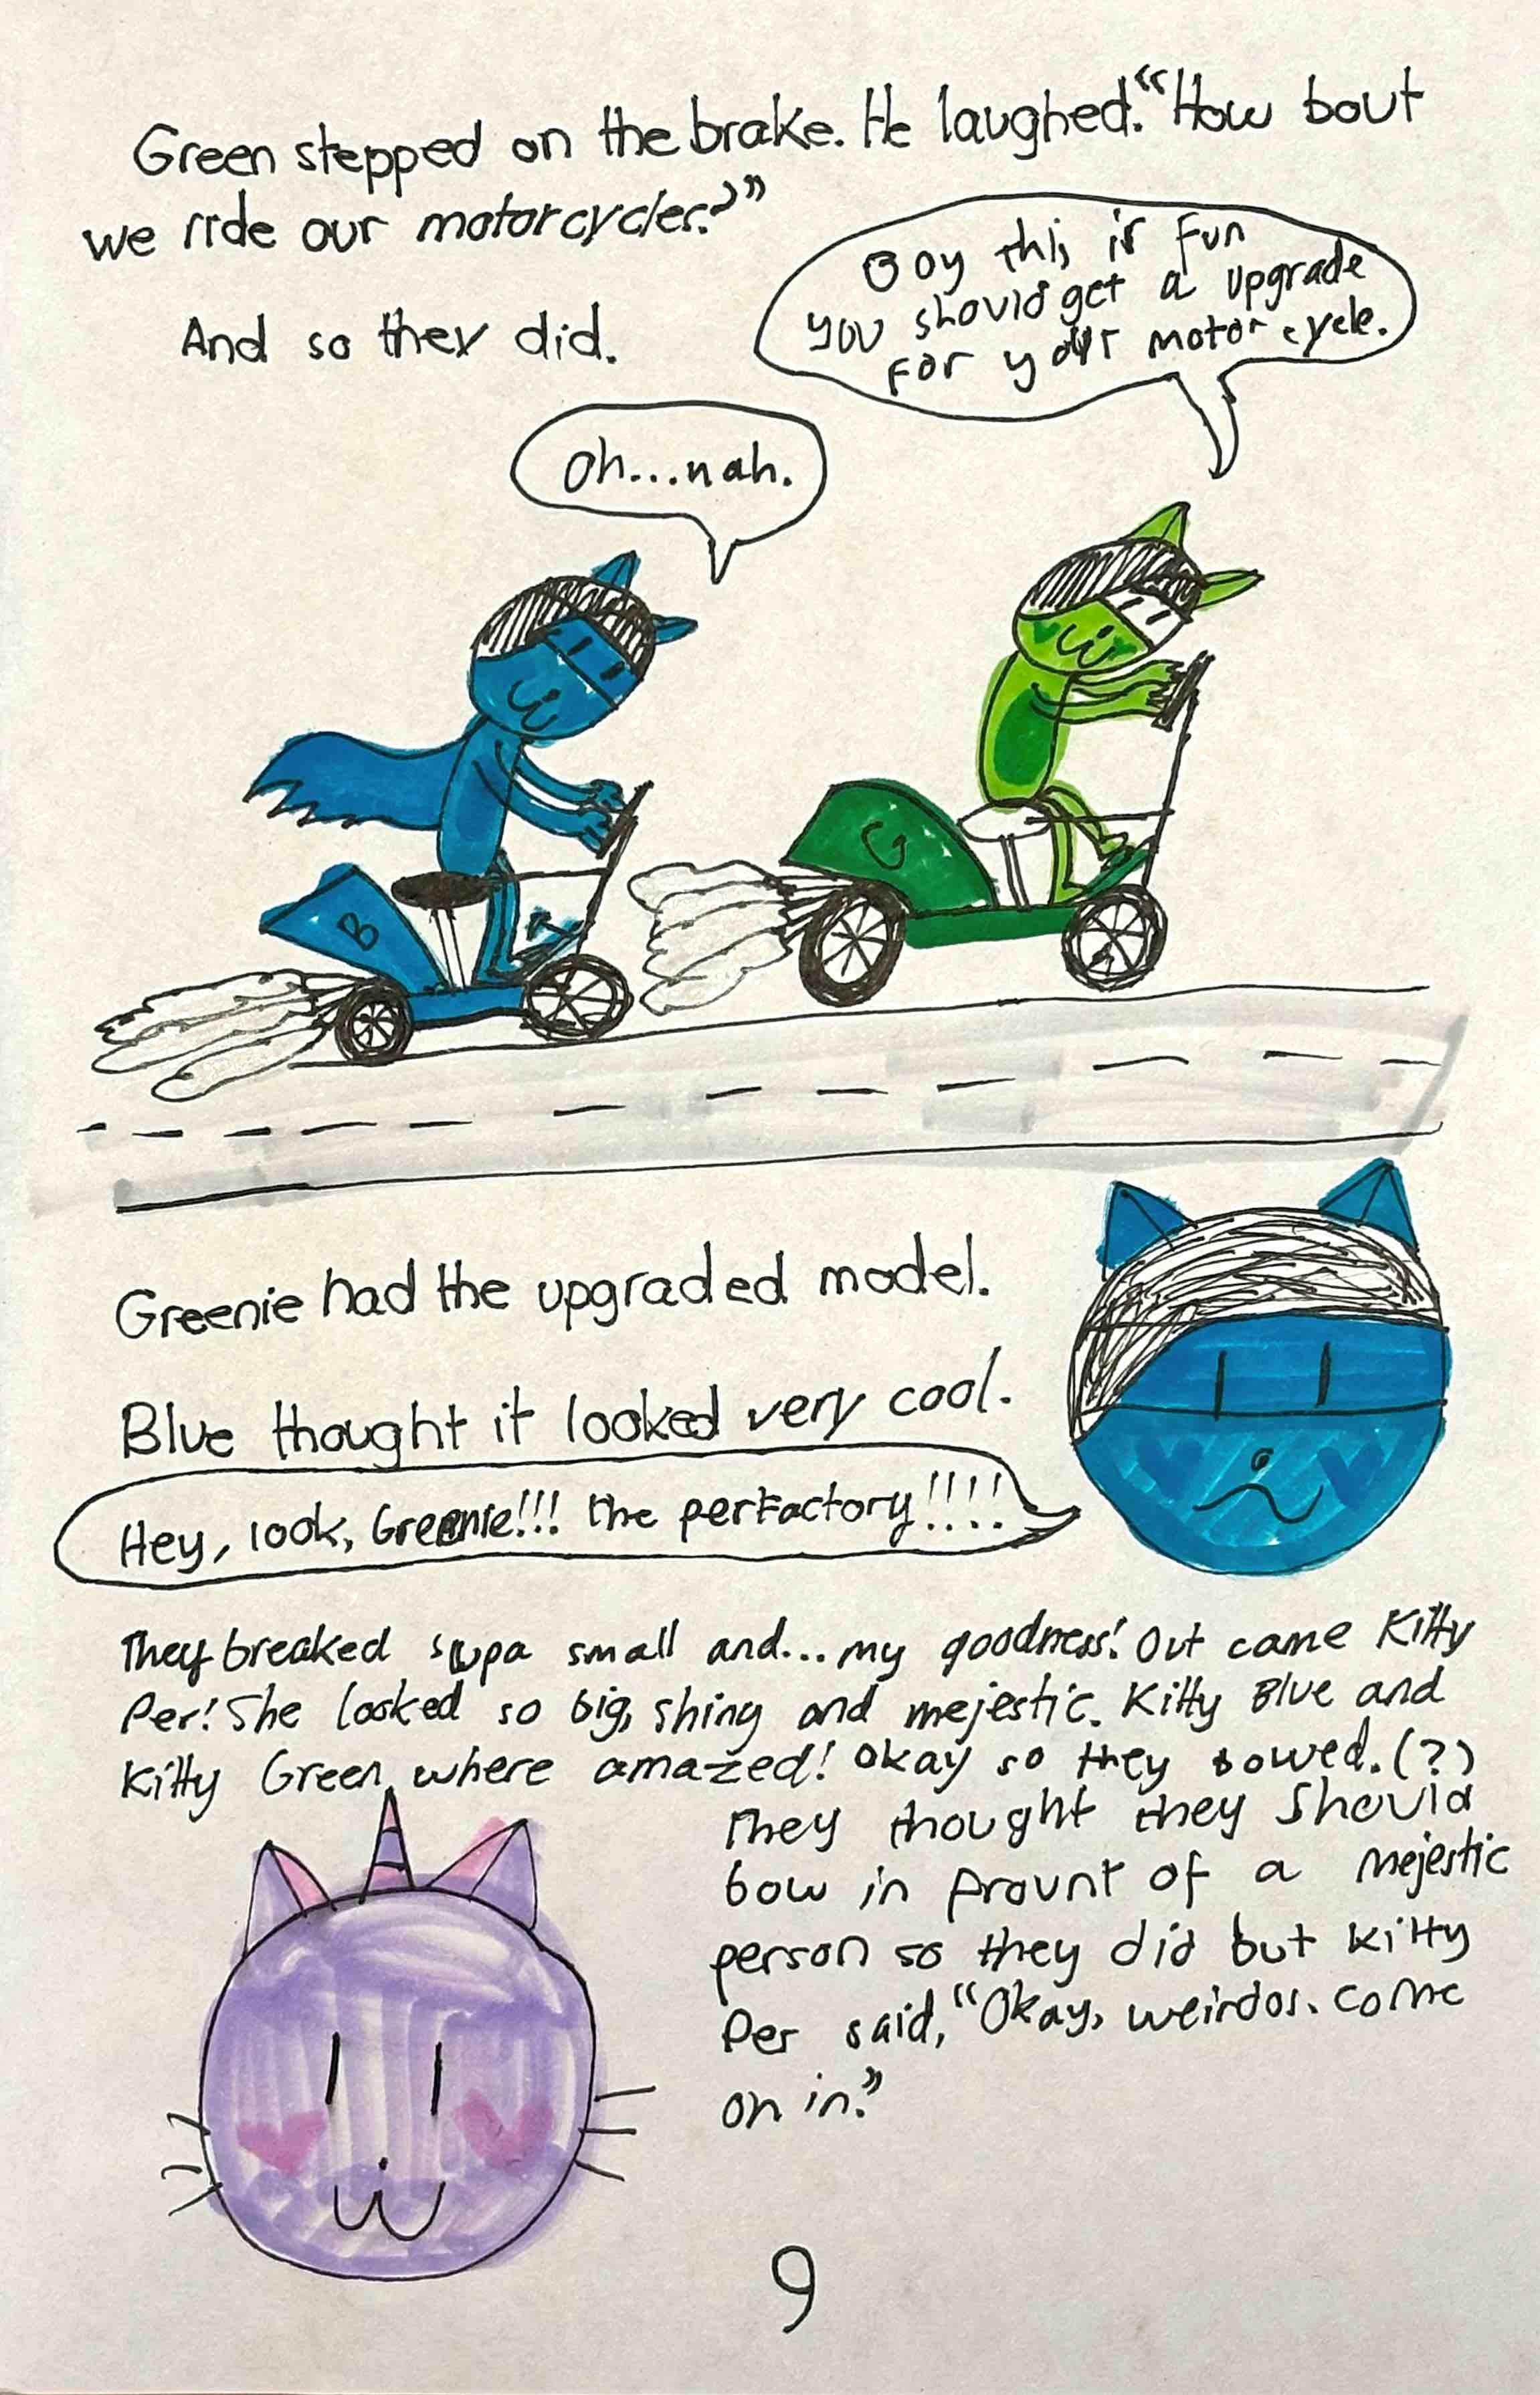 Green stepped on the brake. He laughed. "How bout
we ride our motorcycles?"
And so they did.
Boy this is fun
you should get a upgrade
for your motorcycle.
Oh...nah.
B
G
Greenie had the upgraded model.
Blue thought it looked very cool.
Hey, look, Greenie!!! the perfactory!!!!
They breaked supa small and... my goodness! Out came Kitty
Per! She looked so big, shing and mejestic. Kitty Blue and
Kitty Green where amazed! Okay so they bowed. (?)
They thought they should
bow in prount of a mejestic
person so they did but Kitty
Per said, "Okay, weirdos. come
on in."
9